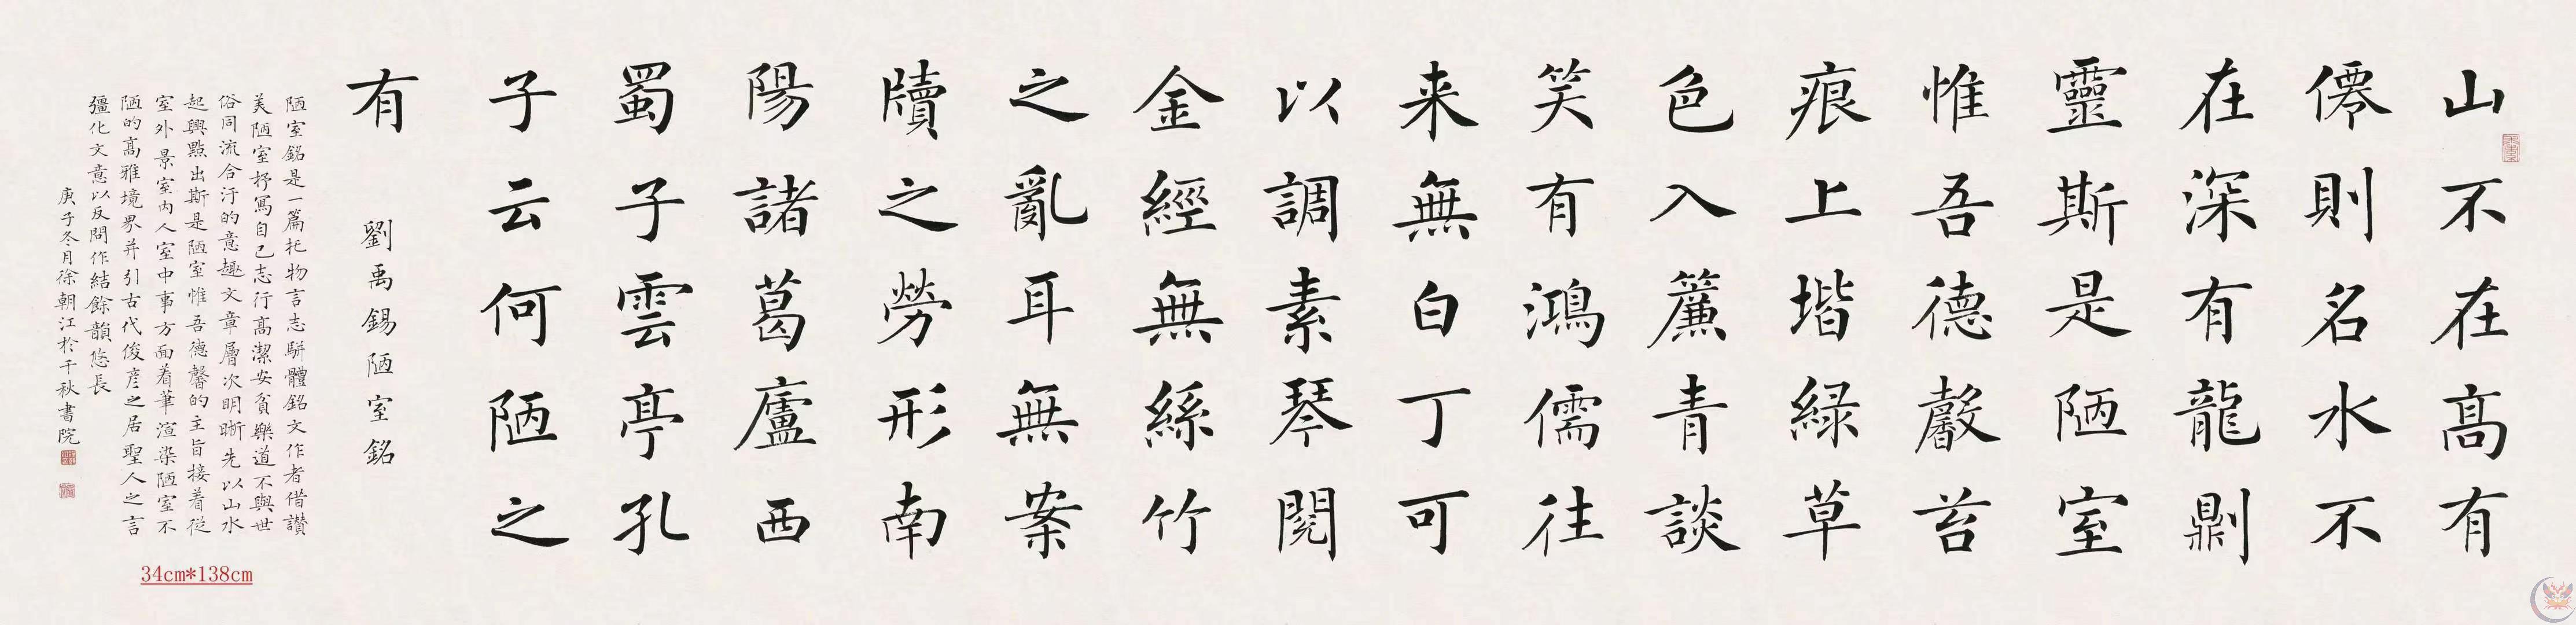 山不在高有
僊則名水不
在深有龍則
靈斯是陋室
惟吾德馨苔
痕上堦緑草
色入簾青談
笑有鴻儒往
来無白丁可
以調素琴閱
金經無絲竹
之亂耳無案
牘之勞形南
陽諸葛廬西
蜀子雲亭孔
子云何陋之
有
劉禹錫陋室銘
陋室銘是一篇托物言志駢體銘文作者借讚
美陋室抒寫自己志行高潔安貧樂道不與世
俗同流合汙的意趣文章層次明晰先以山水
起興點出斯是陋室惟吾德馨的主旨接着從
室外景室内人室中事方面着筆渲染陋室不
陋的高雅境界并引古代俊彦之居聖人之言
彊化文意以反問作結餘韻悠長
庚子冬月徐朝江於千秋書院
34cm*138cm